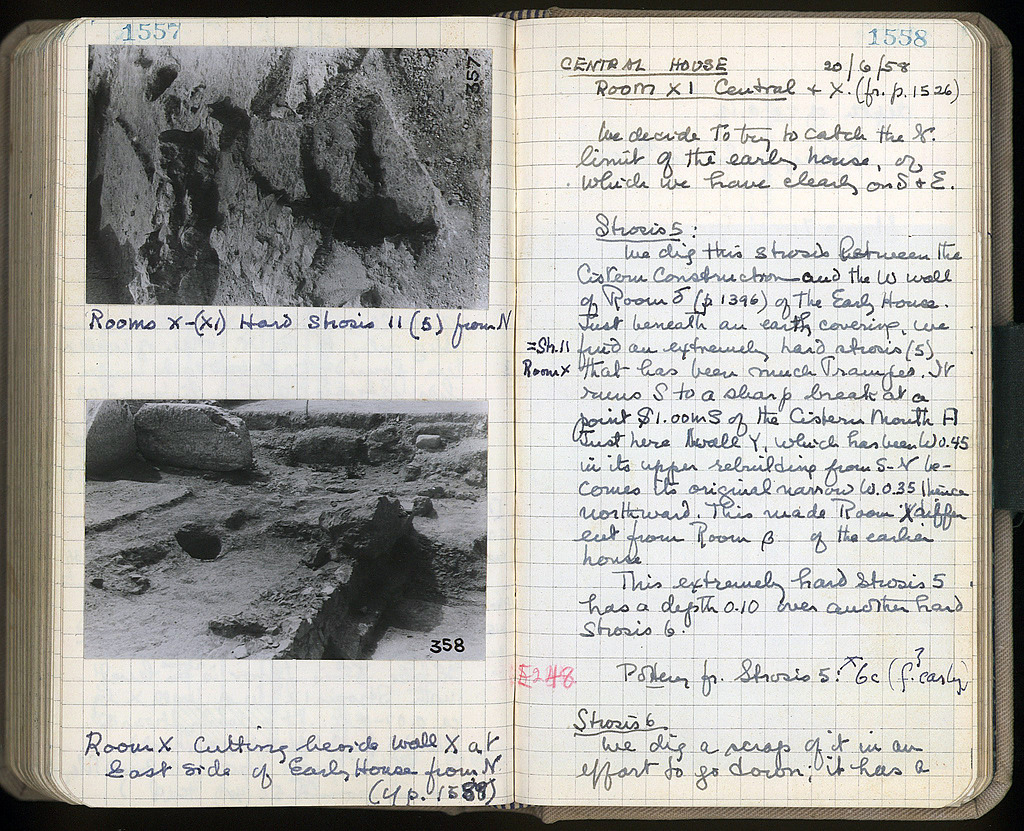 1557
357
Rooms X-(XI) Hard Strosis 11 (5) from N
358
Room X Cutting beside wall X at
East side of Early House from N
(cf p. 1588)
1558
CENTRAL HOUSE 20/6/58
Room XI Central + X. (fr. p. 1526)
We decide to try to catch the
limit of the early house, of
which we have clearly on S + E.
Strosis 5:
We dig this strosis between the
Cistern Construction and the W wall
of Room (p 1396) of the Early House.
Just beneath an earth covering, we
=Str. 11 find an extremely hard strosis (5)
Room X that has been much trampled. It
runs S to a sharp break at a
point 1.00m S of the Cistern Mouth A
Just here wall Y, which has been W 0.45
in its upper rebuilding from S-N be-
comes its original narrow W. 0.35 thence
northward. This made Room X differ
ent from Room β of the earlier
house
This extremely hard Strosis 5
has a depth 0.10 over another hard
Strosis 6.
E248 Pottery fr. Strosis 5: 6c (f. early)
?
Strosis 6
We dig a scrap of it in an
effort to go down; it has a